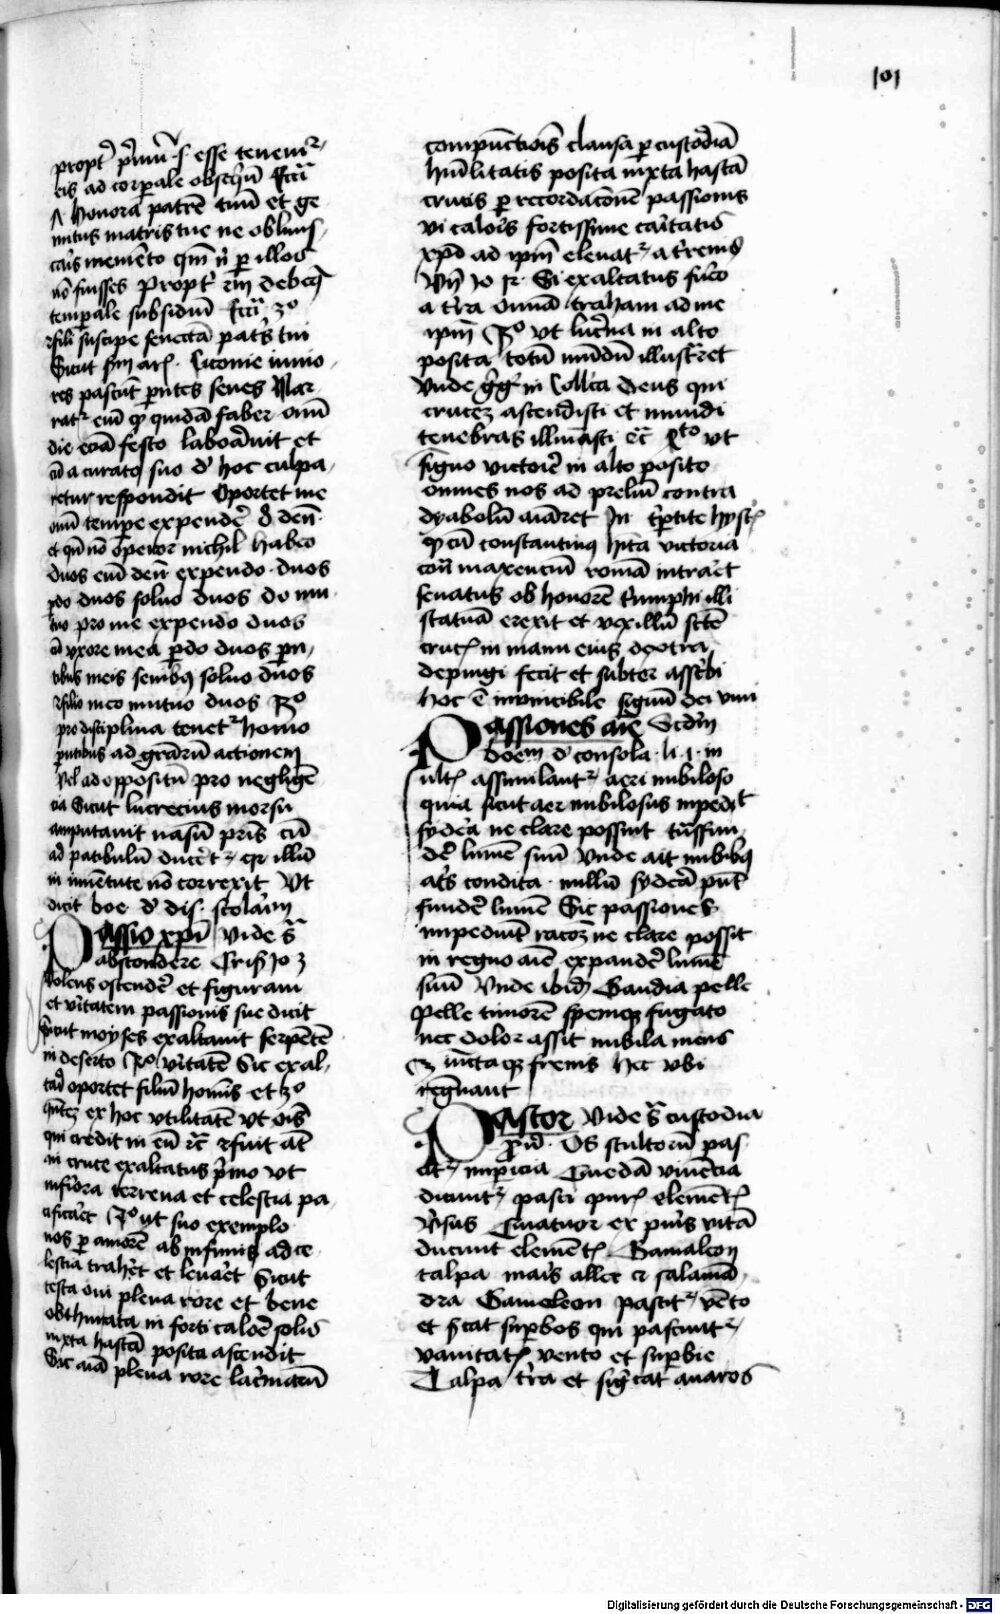 101
propt̄ p̄mū .s. esse tenem̄r
eis ad corꝑale obseqͥū Eccͥ
Λ honora patrē tuū et ge
mitus matris tue ne obliuis
caris memēto qm̄ n̄ ꝑ illos
nō fuisses Propt̄ debēt
temꝑale subsidiū Eccͥ 3º
fili suscipe senectā patͥs tui
Sicut ar. Ciconie iunio
res pascūt pn̄tes senes Nar
ratᷣ em̄ qͩ quidā faber om̄
die eciā festo laborāuit et
cū a curato suo ď hoc culpa
retur respondit Oportet me
om̄ tempe expendē̄ den̄
et qn̄ nō operor nichil habeo
duos em̄ den̄ expendo duos
ꝑdo duos soluo duos do mu
tuo pro me expendo duos
cū vxore mea ꝑdo duos pn̄
tibus meis senibꝰ soluo duos
filio meo mutuo duos Rº
pro disciplina tenetᷣ homo
pn̄tibus ad grāꝝ actionem
Vel ad oppositū pro negligē
cia Sicut lucrecius morsu
amputauit nasū pr̄is cū
ad patibulū ducētᷣ qꝛ illū
in iuuētute nō correxit Vt
dicit boe ď dis. scolariū
Passio xpī Vide s̄
abscondere Crisͭ Jo 3
Volens ostendē̄ et figuram
et vͥtatem passionis sue dicit
Sicut moyses exaltauit serpētē
in deserto Rº vͥtatē Sic exal
tari oportet filiū homīs et 3º
ex hoc vtilitatē vt oīs
qui credit in eū ꝛc̄ fuit at̄
in cruce exaltatus pͥmo vt
infͥora terrena et celestia pa
cificāet Rº ut suo exemplo
nos ꝑ amorē ab infimis ad ce
lestia trahēt et leuāet Sicut
testa oui plena rore et bene
obthurata in forti calorē solis
iuxta hastā posita ascendit
Sic aiā plena rore lacͥmarū
compūctiois clausa ꝑ custodiā
hūilitatis posita iuxta hastā
crucis ꝑ recordacōnem passionis
vi calorͥs fortissime caritatis
xpͥ ad ipm̄ eleuatᷣ a trͤenis
Vn̄ Jo 12 Si exaltatus fuͥo
a tr̄a omīa traham ad me
ipm̄ Rº vt lucͤna in alto
posita totū mūdū illustͬet
Vnde gͤgͬ in Collͨa Deus qui
crucem ascendisti et mundi
tenebras illumͥasti ꝛc̄ qͬto vt
signo victoͥe in alto posito
omnes nos ad preliū contra
dyabolū aiāret In tͥpͬtite hyst
qͩ cū constantinꝰ hīta victoria
con̄ maxenciū romā intrāet
senatus ob honorē triumphi illi
statuā erexit et vexillū sctē
crucͥ in manu eius dextra
depingi fecit et subter assͨbi
hoc ē inuincibile signū dei viui
Passiones aīe Scdm̄
boem ď consola. li. 1. in
fine assimilantᷣ aeri nubiloso
quia sicut aer nubilosus inpedit
sydͤa ne clare possint tͥnsfun
dē̄ lumē suū Vnde ait nubibꝰ
atͥs condita nullū sydͤa pn̄t
fundē̄ lumē Sic passiones
impediūt racōem ne clare possit
in regno aīe expandē̄ lumē
suū Vnde ibid̄ Gaudia pelle
Pelle timorē spemqꝫ fugato
nec dolor assit nubila mens
ē̄ vīctaqꝫ frenis hec vbi
regnant
Pastor Vide s̄ custodia
pͬuͥ. Os stultorū pas
citᷣ impͥcia Quedā viuēcia
dicūtᷣ pasci purͦ elemētͦ
Vͬsus Quatuor ex puͬis vitā
ducunt elemētͥ Gamaleon
talpa maris allec et salamā
dra Gamoleon pascitᷣ vēto
et sͥcat supͬbos qui pascuntᷣ
vanitatͥ vento et supͬbie
Talpa tr̄a et sigͥcat auaros
Digitalisierung gefördert durch die Deutsche Forschungsgemeinschaft - DFG